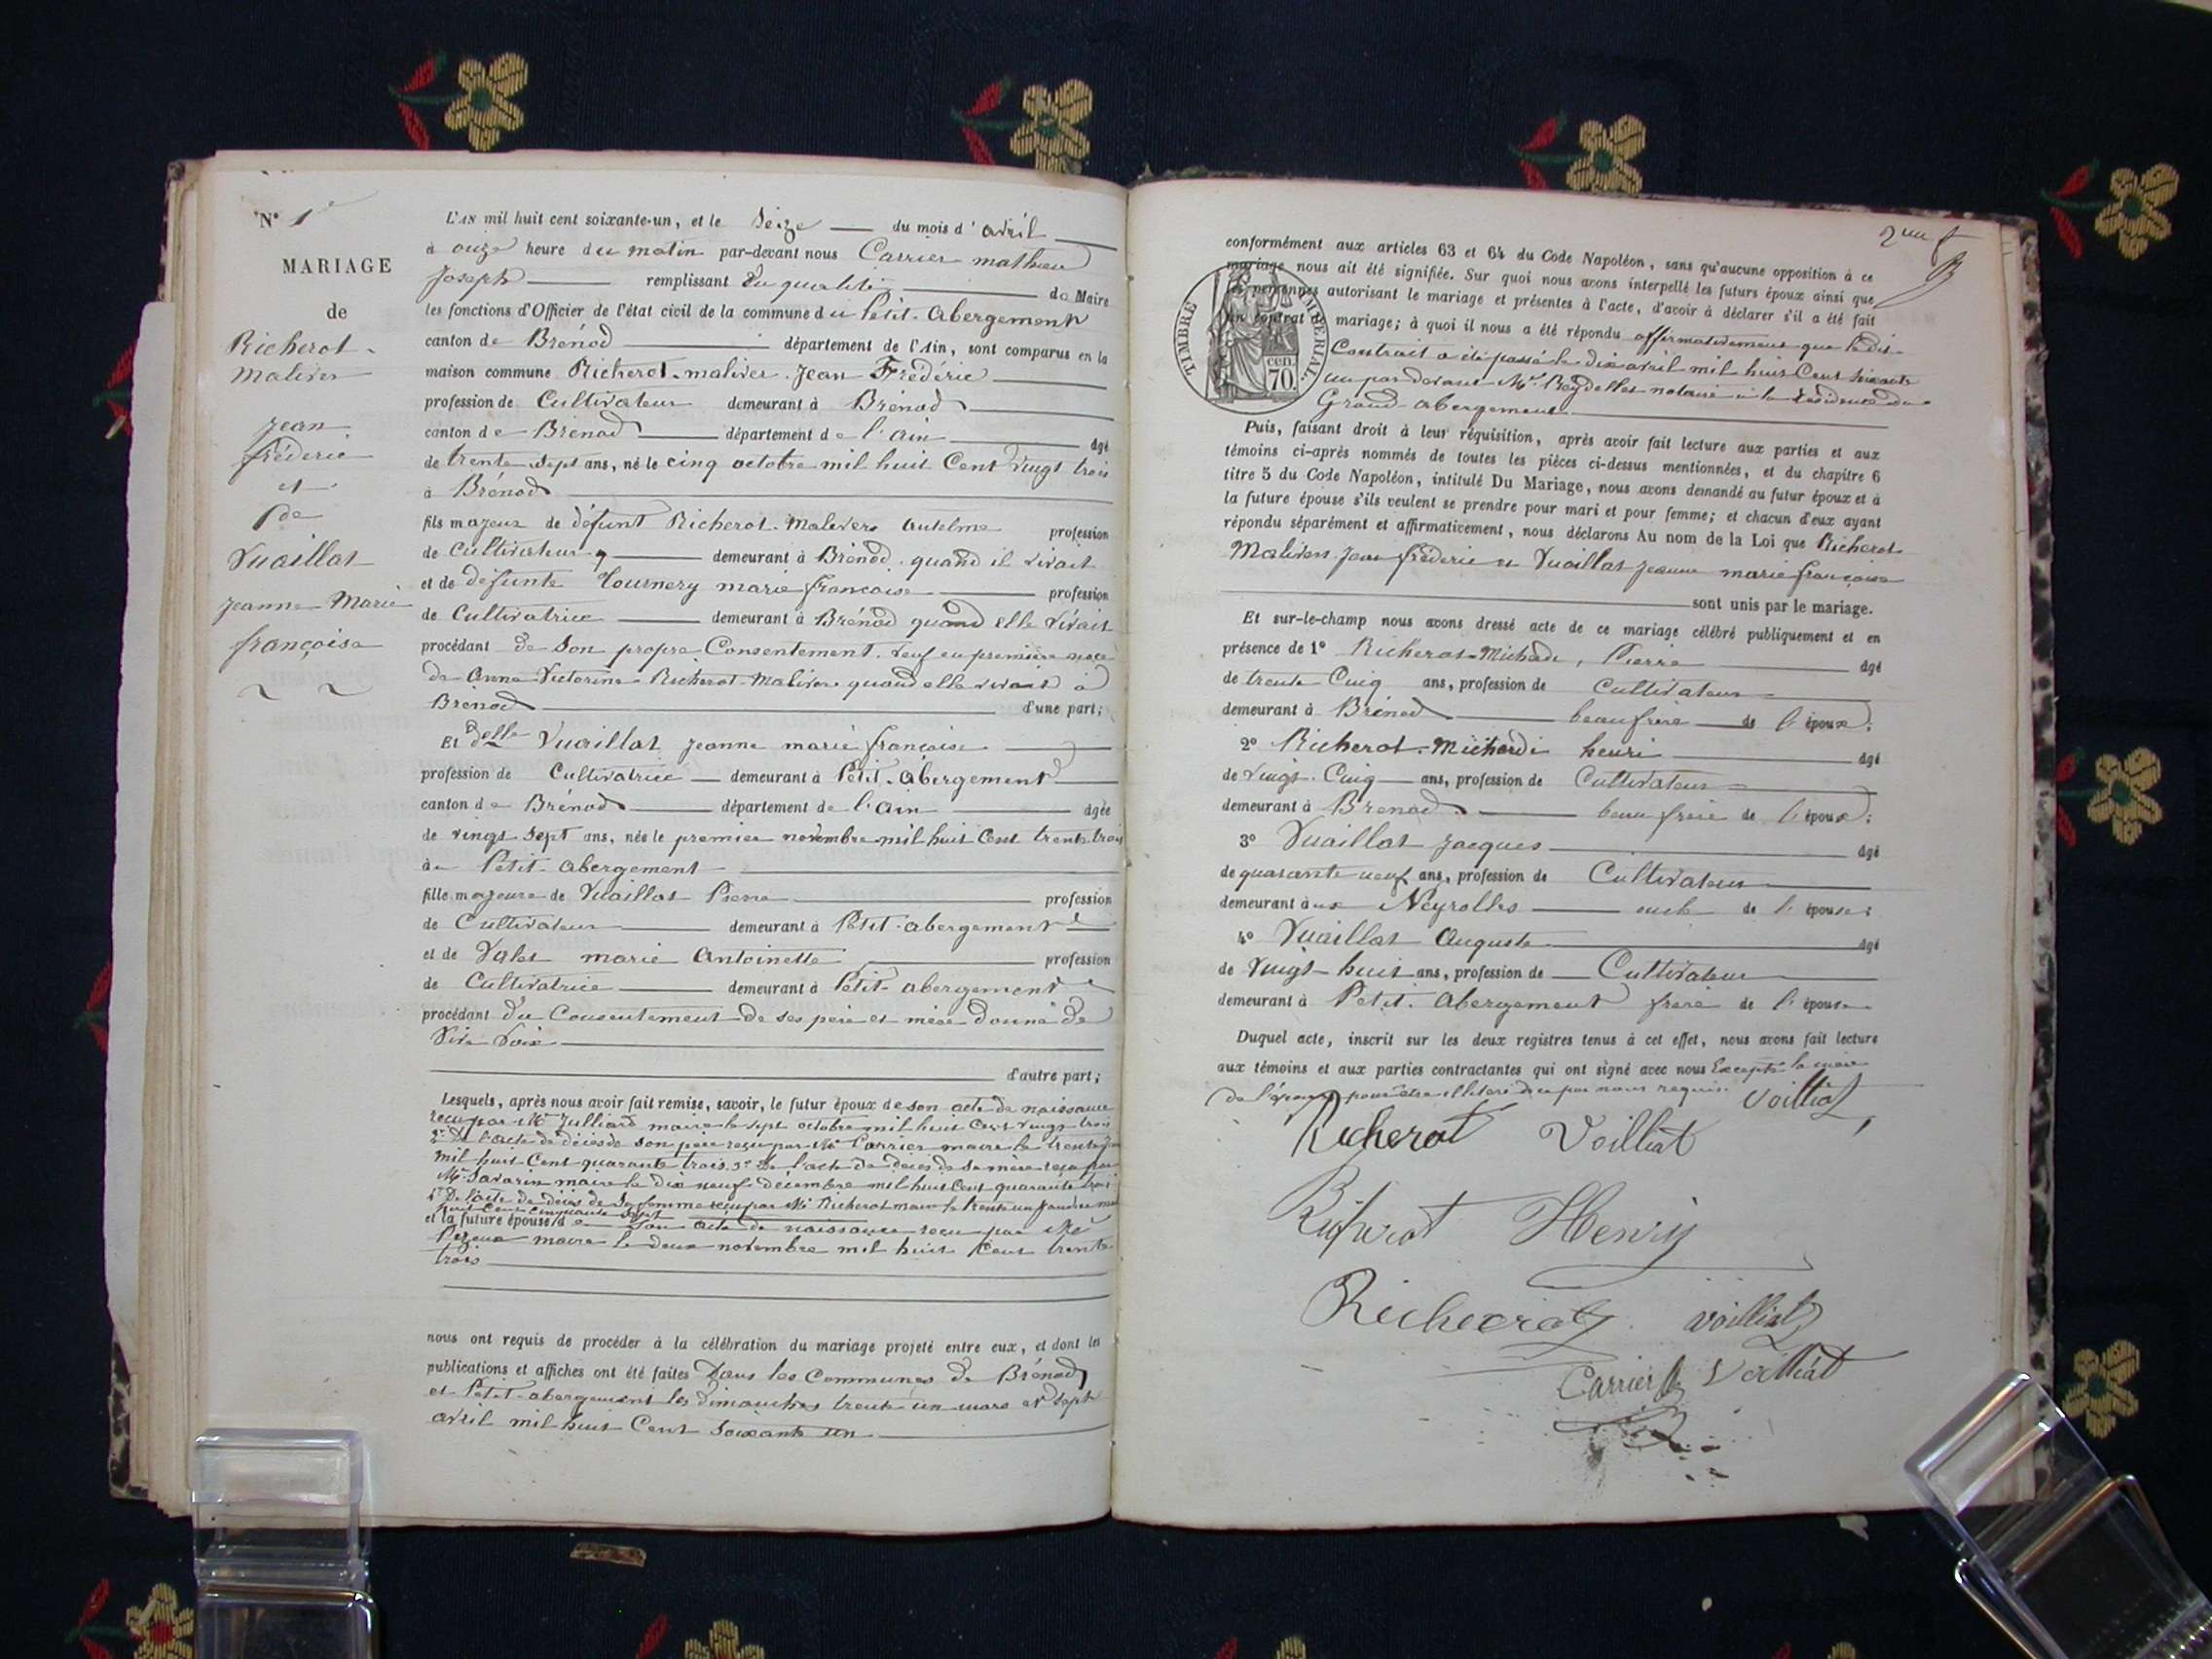 N° 1
MARIAGE
de
Richerot-
Maliver
Jean
frédéric
et
de
Vuaillat
Jeanne Marie
françoise
L'AN mil huit cent soixante-un, et le Seize du mois d'avril
à onze heure du matin par-devant nous Carrier mathieu
Joseph remplissant en qualité de Maire
les fonctions d'Officier de l'état civil de la commune du Petit-Abergement
canton de Brénod département de l'Ain, sont comparus en la
maison commune Richerot-maliver Jean Frédéric
profession de Cultivateur demeurant à Brénod
canton de Brénod département de l'ain âgé
de trente Sept ans, né le cinq octobre mil huit Cent vingt trois
à Brénod
fils majeur de défunt Richerot-Maliver Antelme profession
de Cultivateur demeurant à Brénod quand il vivait
et de défunte Tournery marie françoise profession
de Cultivatrice demeurant à Brénod quand elle vivait
procédant de Son propre Consentement. veuf en première noce
de Anne Victorine Richerot-Maliver quand elle vivait à
Brénod d'une part;
Et delle Vuaillat jeanne marie françoise
profession de Cultivatrice demeurant à Petit-Abergement
canton de Brénod département de l'ain âgée
de vingt Sept ans, née le premier novembre mil huit Cent trente trois
à Petit-abergement
fille majeure de Vuaillat Pierre profession
de Cultivateur demeurant à Petit-abergement
et de Valet marie Antoinette profession
de Cultivatrice demeurant à Petit-abergement
procédant du Consentement de ses père et mère donné de
Vive Voix
d'autre part;
Lesquels, après nous avoir fait remise, savoir, le futur époux de son acte de naissance
reçu par Mr Julliard maire le sept octobre mil huit Cent vingt trois
2° De l'acte de décès de son père reçu par Mr Carrier maire le trente
mil huit Cent quarante trois 3° De l'acte de décès de sa mère reçu par
Mr Savarin maire le dix neuf décembre mil huit Cent quarante trois
4° De l'acte de décès de Sa femme reçu par Mr Richerot maire le trente un janvier mil
huit Cent cinquante Sept
et la future épouse de Son acte de naissance reçu par Mr
maire le deux novembre mil huit Cent trente
trois
nous ont requis de procéder à la célébration du mariage projeté entre eux, et dont les
publications et affiches ont été faites Dans les Communes de Brénod
et Petit-abergement les dimanches trente un mars et Sept
avril mil huit Cent Soixante un
conformément aux articles 63 et 64 du Code Napoléon, sans qu'aucune opposition à ce
mariage nous ait été signifiée. Sur quoi nous avons interpellé les futurs époux ainsi que
les personnes autorisant le mariage et présentes à l'acte, d'avoir à déclarer s'il a été fait
un contrat de mariage; à quoi il nous a été répondu affirmativement que le dit
Contrait a été passé le dix avril mil huit Cent Soixante
un par devant Mr notaire à la résidence du
Grand abergement
TIMBRE IMPERIAL
70 cen
Puis, faisant droit à leur réquisition, après avoir fait lecture aux parties et aux
témoins ci-après nommés de toutes les pièces ci-dessus mentionnées, et du chapitre 6
titre 5 du Code Napoléon, intitulé Du Mariage, nous avons demandé au futur époux et à
la future épouse s'ils veulent se prendre pour mari et pour femme; et chacun d'eux ayant
répondu séparément et affirmativement, nous déclarons Au nom de la Loi que Richerot
Maliver Jean frédéric et Vuaillat jeanne marie françoise
sont unis par le mariage.
Et sur-le-champ nous avons dressé acte de ce mariage célébré publiquement et en
présence de 1° Richerot-Michade, Pierre âgé
de trente Cinq ans, profession de Cultivateur
demeurant à Brénod beau frère de l'époux;
2° Richerot-Michardi henri âgé
de vingt-Cinq ans, profession de Cultivateur
demeurant à Brénod beau frère de l'époux;
3° Vuaillat Jacques âgé
de quarante neuf ans, profession de Cultivateur
demeurant aux Neyrolles oncle de l'épouse;
4° Vuaillat Auguste âgé
de Vingt-huit ans, profession de Cultivateur
demeurant à Petit-Abergement frère de l'épouse
Duquel acte, inscrit sur les deux registres tenus à cet effet, nous avons fait lecture
aux témoins et aux parties contractantes qui ont signé avec nous Excepté la mère
de l'épouse pour être illitéré de ce par nous requis. Voilliat
Richerot Voilliat
Richerot Henry
Richerot voilliat
Carrier Voilliat